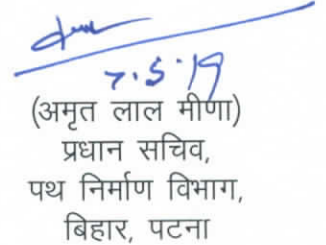 7.5.19
(अमृत लाल मीणा)
प्रधान सचिव,
पथ निर्माण विभाग,
बिहार, पटना